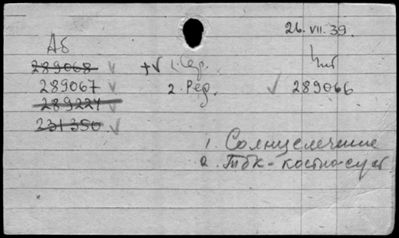 26.VII.39.
Аб
289068 + √ 1. Сер. Инв
289067 √ 2. Ред. √ 289066
289227 √
231350 √
1. Солнцелечение
2. Тбк - костно-суст